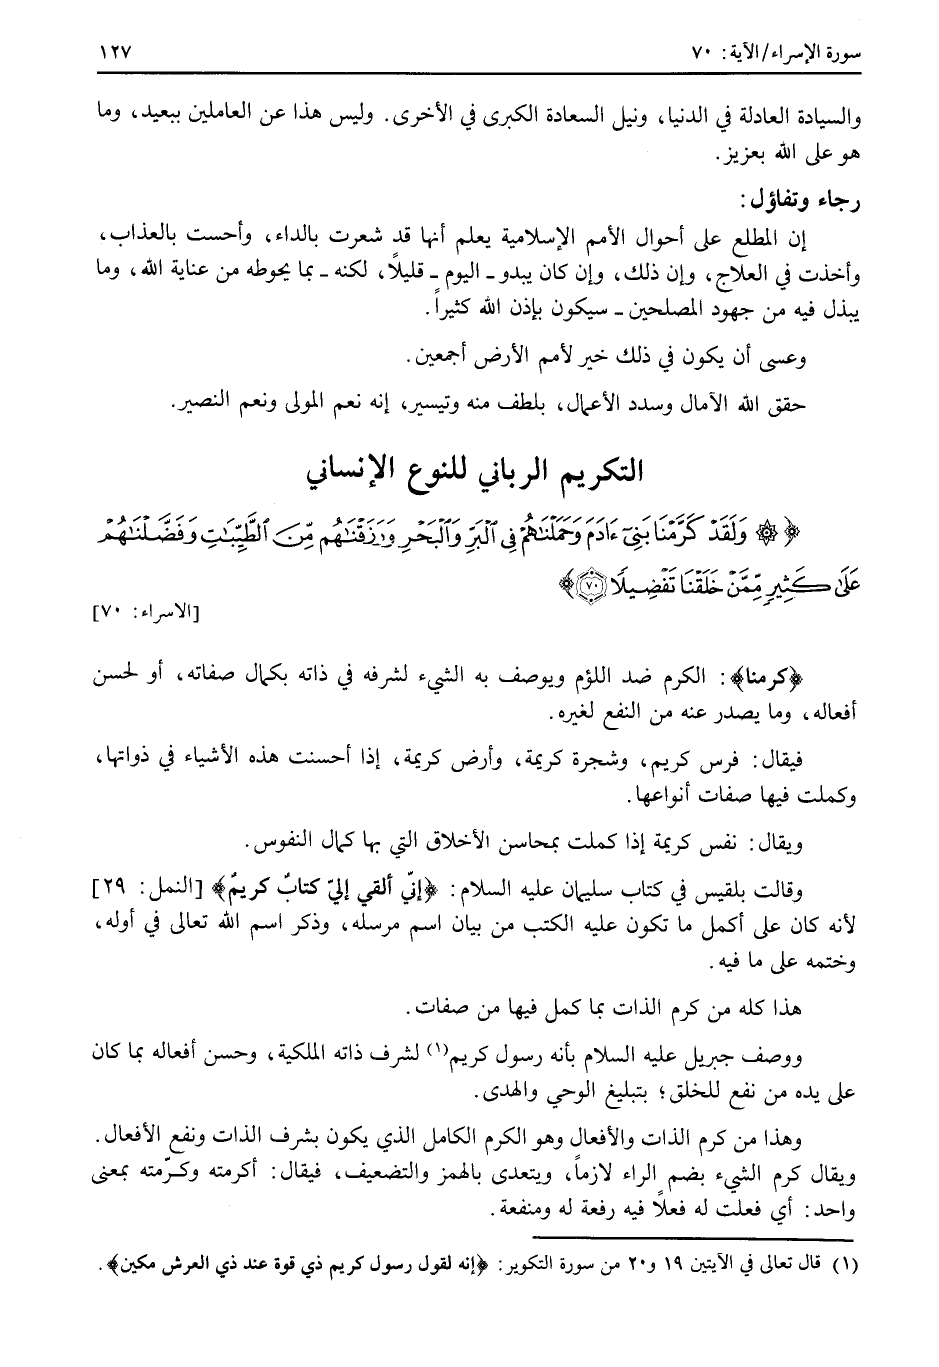 سورة الإسراء/الآية: ٧٠
١٢٧
والسيادة العادلة في الدنيا، ونيل السعادة الكبرى في الأخرى. وليس هذا عن العاملين ببعيد، وما
هو على الله بعزيز.
رجاء وتفاؤل:
إن المطلع على أحوال الأمم الإسلامية يعلم أنها قد شعرت بالداء، وأحست بالعذاب،
وأخذت في العلاج، وإن ذلك، وإن كان يبدو ـ اليوم ـ قليلاً، لكنه ـ بما يحوطه من عناية الله، وما
يبذل فيه من جهود المصلحين ـ سيكون بإذن الله كثيراً.
وعسى أن يكون في ذلك خير لأمم الأرض أجمعين.
حقق الله الآمال وسدد الأعمال، بلطف منه وتيسير، إنه نعم المولى ونعم النصير.
التكريم الرباني للنوع الإنساني
﴿ ۞ وَلَقَدْ كَرَّمْنَا بَنِىٓ ءَادَمَ وَحَمَلْنَٰهُمْ فِى ٱلْبَرِّ وَٱلْبَحْرِ وَرَزَقْنَٰهُم مِّنَ ٱلطَّيِّبَٰتِ وَفَضَّلْنَٰهُمْ
عَلَىٰ كَثِيرٍ مِّمَّنْ خَلَقْنَا تَفْضِيلًا ٧٠﴾
[الاسراء: ٧٠]
﴿كرمنا﴾: الكرم ضد اللؤم ويوصف به الشيء لشرفه في ذاته بكمال صفاته، أو لحسن
أفعاله، وما يصدر عنه من النفع لغيره.
فيقال: فرس كريم، وشجرة كريمة، وأرض كريمة، إذا أحسنت هذه الأشياء في ذواتها،
وكملت فيها صفات أنواعها.
ويقال: نفس كريمة إذا كملت بمحاسن الأخلاق التي بها كمال النفوس.
وقالت بلقيس في كتاب سليمان عليه السلام: ﴿إنّي ألقي إليّ كتابٌ كريمٌ﴾ [النمل: ٢٩]
لأنه كان على أكمل ما تكون عليه الكتب من بيان اسم مرسله، وذكر اسم الله تعالى في أوله،
وختمه على ما فيه.
هذا كله من كرم الذات بما كمل فيها من صفات.
ووصف جبريل عليه السلام بأنه رسول كريم(١) لشرف ذاته الملكية، وحسن أفعاله بما كان
على يده من نفع للخلق؛ بتبليغ الوحي والهدى.
وهذا من كرم الذات والأفعال وهو الكرم الكامل الذي يكون بشرف الذات ونفع الأفعال.
ويقال كرم الشيء بضم الراء لازماً، ويتعدى بالهمز والتضعيف، فيقال: أكرمته وكرّمته بمعنى
واحد: أي فعلت له فعلاً فيه رفعة له ومنفعة.
(١) قال تعالى في الآيتين ١٩ و٢٠ من سورة التكوير: ﴿إنه لقول رسول كريم ذي قوة عند ذي العرش مكين﴾.